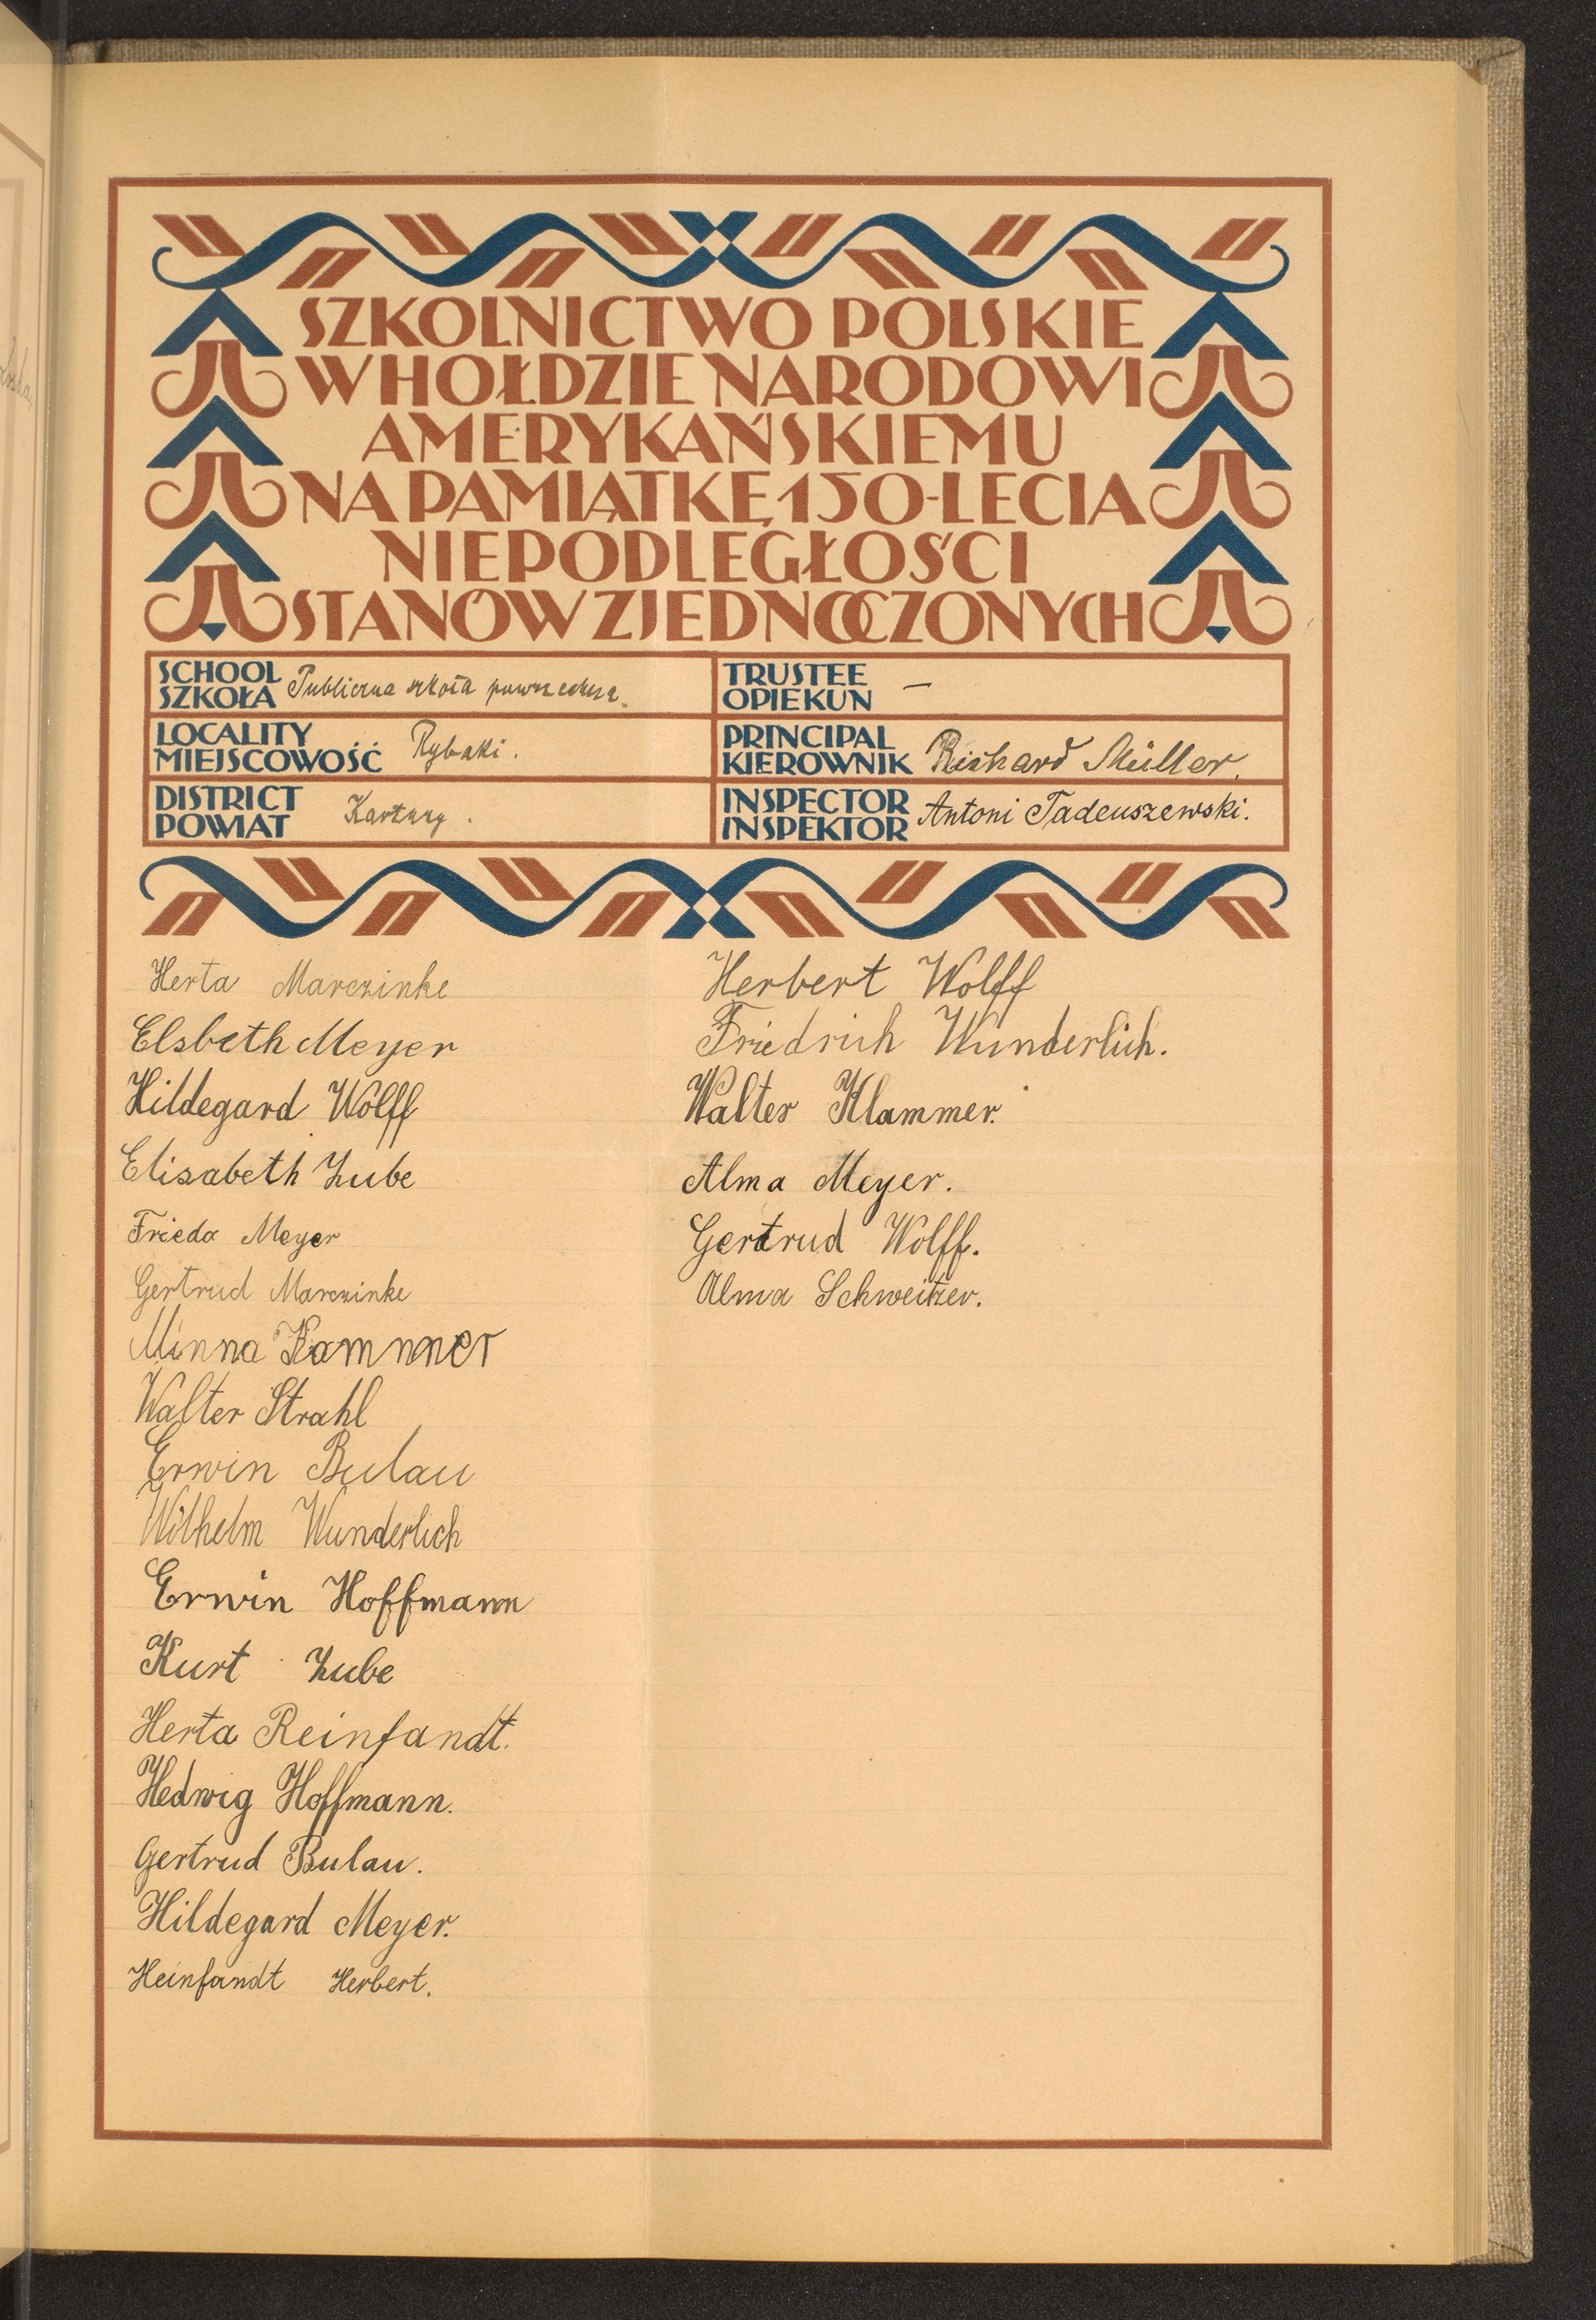 SZKOLNICTWO POLSKIE
W HOŁDZIE NARODOWI
AMERYKAŃSKIEMU
NA PAMIĄTKĘ 150-LECIA
NIEPODLEGŁOŚCI
STANÓW ZJEDNOCZONYCH
SCHOOL
SZKOŁA Publiczna szkoła powszechna.
TRUSTEE
OPIEKUN —
LOCALITY
MIEJSCOWOŚĆ Rybaki.
PRINCIPAL
KIEROWNIK Richard Müller.
DISTRICT
POWIAT Kartuzy.
INSPECTOR
INSPEKTOR Antoni Tadeuszewski.
Herta Marczinke
Elsbeth Meyer
Hildegard Wolff
Elisabeth Zube
Frieda Meyer
Gertrud Marczinke
Minna Kammner
Walter Strahl
Erwin Bulau
Wilhelm Wunderlich
Erwin Hoffmann
Kurt Zube
Herta Reinfandt.
Hedwig Hoffmann.
Gertrud Bulau.
Hildegard Meyer.
Heinfandt Herbert.
Herbert Wolff
Friedrich Wunderlich.
Walter Klammer.
Alma Meyer.
Gertrud Wolff.
Alma Schweitzer.